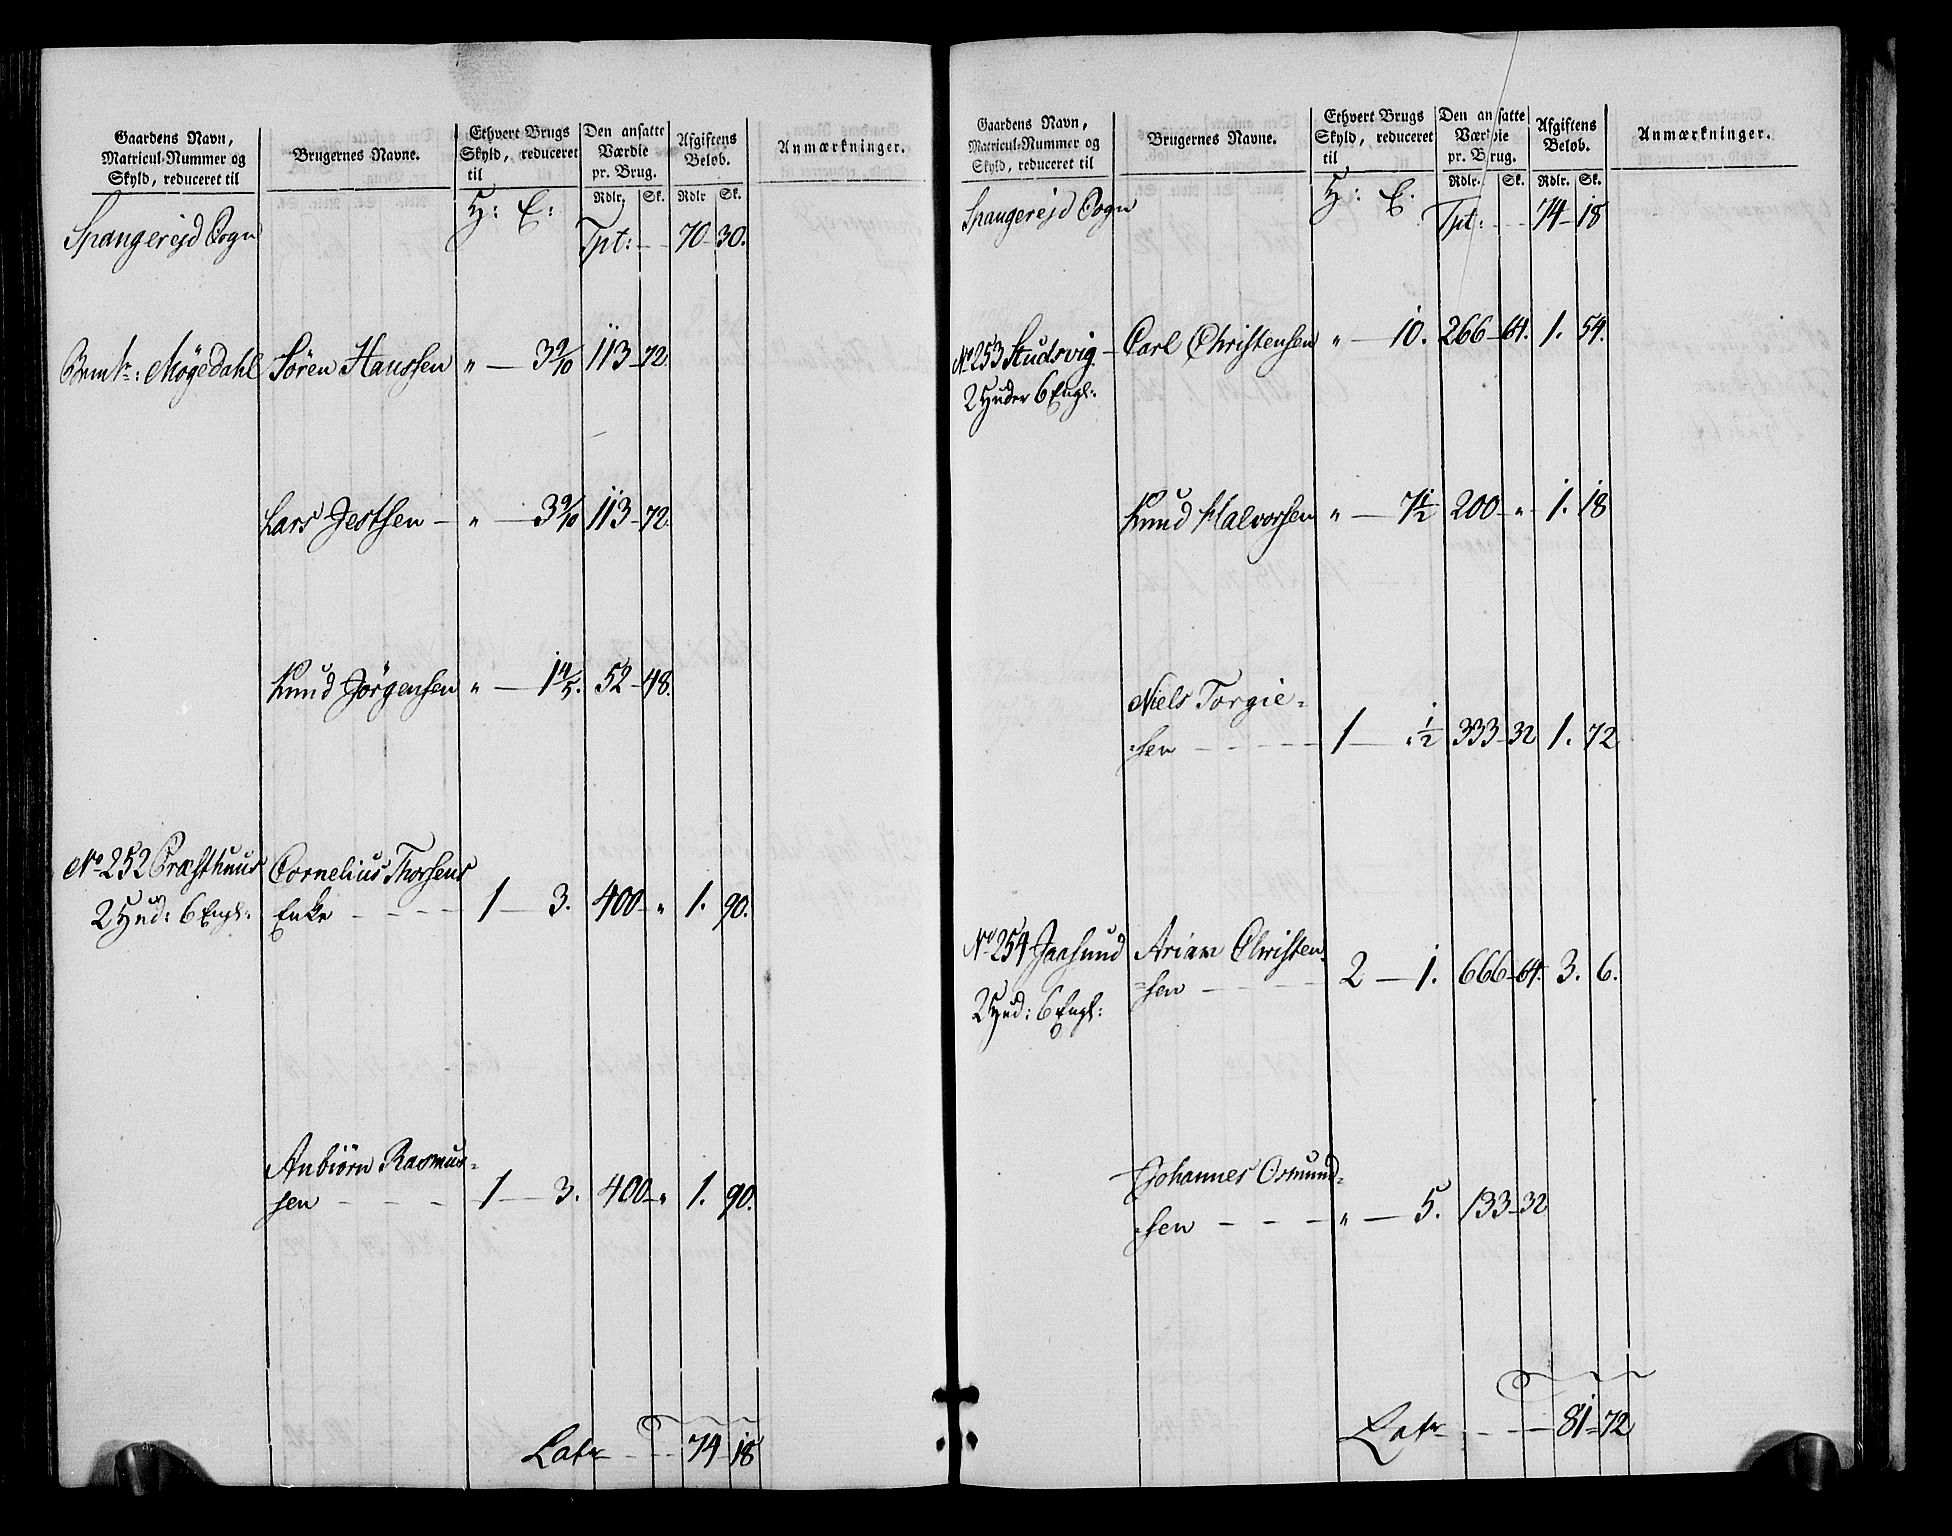 Gaardens Navn, Matricul-Nummer og Skyld, reduceret til
Brugernes Navne.
Ethvert Brugs Skyld, reduceret til
Den ansatte Værdie pr. Brug.
Afgiftens Beløb.
Anmærkninger.
H: E: Rdlr. Sk. Rdlr Sk.
Spangereid Sogn Tpt: 70 30.
Møgedahl Søren Hanssen " 3 9/10 113 72.
Lars Jestsen " 3 9/10 113 72.
Knud Jørgensen " 1 4/5. 52 48.
No 252 Præsthuus Cornelius Thorsens
2 Hud: 6 Engl: Enke 1 3. 400 " 1. 90.
Anbiørn Rasmus-
sen 1 3. 400 " 1. 90.
Latr 74 18
Gaardens Navn, Matricul-Nummer og Skyld, reduceret til
Brugernes Navne.
Ethvert Brugs Skyld, reduceret til
Den ansatte Værdie pr. Brug.
Afgiftens Beløb.
Anmærkninger.
H: E. Rdlr. Sk. Rdlr. Sk.
Spangereid Sogn Tpt: 74 18
No 253 Studsvig Carl Christensen " 10. 266 64. 1. 54.
2 Huder 6 Engl:
Knud Halvorsen " 7 1/2 200 " 1. 18
Niels Torgie=
=sen 1 " 1/2 333 32 1. 72
No 254 Jaasund Arian Christen=
=sen 2 1. 666 64. 3. 6.
2 Hud: 6 Engl:
Johannes Osmund=
=sen " 5. 133 32
Latr 81 72